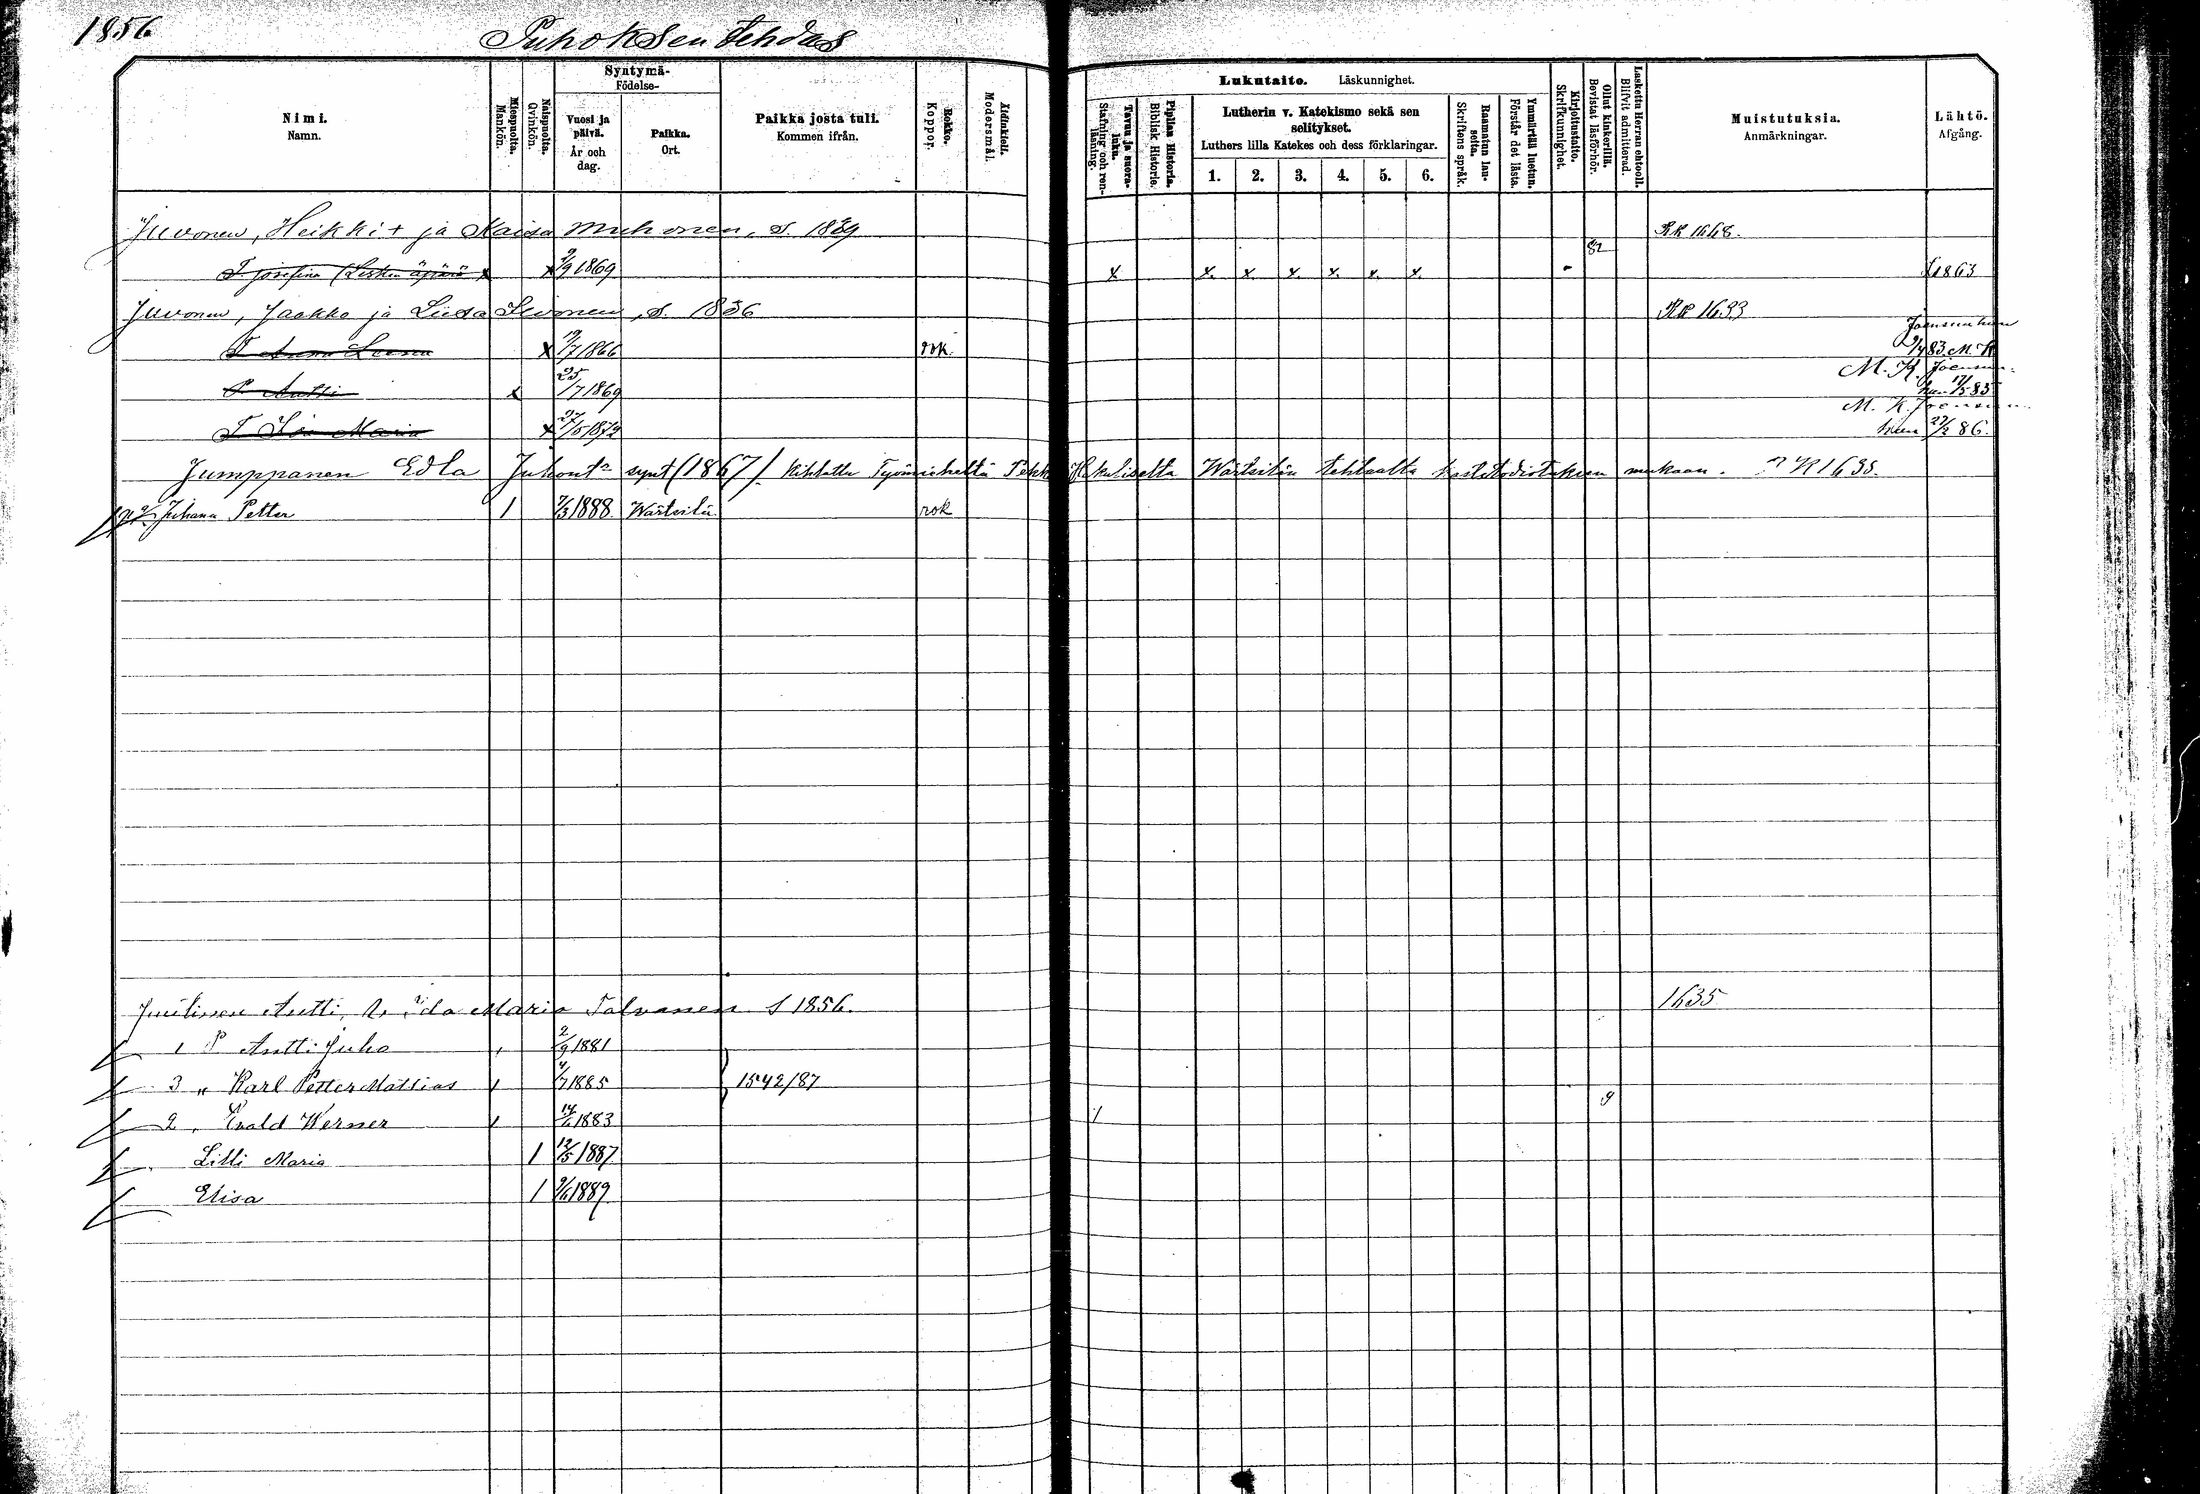 1856
Puhoksen tehdas
Nimi.
Namn.
Miespuolta.
Mankön.
Naispuolta.
Qvinkön.
Syntymä-
Födelse-
Vuosi ja päivä.
År och dag.
Paikka.
Ort.
Paikka josta tuli.
Kommen ifrån.
Rokko.
Koppor.
Äidinkieli.
Modersmål.
Lukutaito. Läskunnighet.
Tavuu ja suora-luku.
Stafning och ren-läsning.
Piplian Historia.
Biblisk Historie.
Lutherin v. Katekismo sekä sen selitykset.
Luthers lilla Katekes och dess förklaringar.
1. 2. 3. 4. 5. 6.
Raamatun lau-seita.
Skriftens språk.
Ymmärtää luetun.
Förstår det lästa.
Kirjoitustaito.
Skrifkunnighet.
Ollut kinkerillä.
Bevistat läsförhör.
Laskettu Herran ehtooll.
Blifvit admitterad.
Muistutuksia.
Anmärkningar.
Lähtö.
Afgång.
Juvonen, Heikki + ja Kaisa Muhonen, s. 1839 RK 1668.
T. Josefina x 2/9 1869 x x. x x. x. x. x. 82 1863
Juvonen, Jaakko ja Liisa S. 1836 RK 1633
T Anna Leena x 19/7 1866 rok. Joensuuhun 83. M. K.
P Antti x 25/7 1869 M. K. Joensuu-hun 17/5 85
T Maria x 27/5 1872 M. K. Joensuuhun 86.
Jumppanen Edla Juhont. synt (1867) Wärtsilän tehtaalta mukaan. RK 1635.
Juhana Petter 1 7/3 1888. Wärtsilä rok
Antti, v. Ida Maria Talvanen S 1856. 1635
1 P Antti Juho 2/9 1881
3 " Karl Petter Mattias 4/7 1885 1542/87
2 " Evald Werner 14/6 1883 1 9
Lilli Maria 1 12/5 1887
Elisa 1 9/6 1889